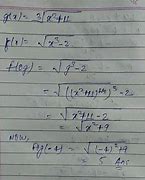 g(x) = 3√x²+11
f(x) = √x³-2
f(og) = √g³-2
= √((x²+11)^1/3)³-2
= √x²+11-2
= √x²+9
Now,
fog(-4) = √(-4)²+9
= 5 Ans